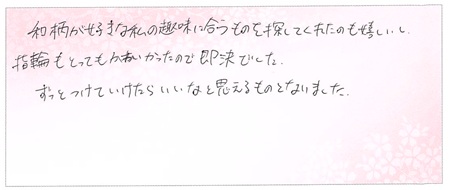 和柄が好きな私の趣味に合うものを探してくれたのも嬉しいし、
指輪もとってもかわいかったので即決でした。
ずっとつけていけたらいいなと思えるものとなりました。